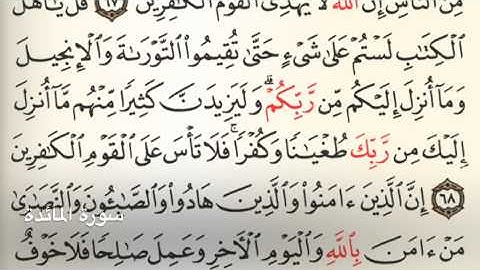 مِنَ النَّاسِ إِنَّ اللَّهَ لَا يَهْدِي الْقَوْمَ الْكَافِرِينَ ٦٧ قُلْ يَا أَهْلَ
الْكِتَابِ لَسْتُمْ عَلَىٰ شَيْءٍ حَتَّىٰ تُقِيمُوا التَّوْرَاةَ وَالْإِنجِيلَ
وَمَا أُنزِلَ إِلَيْكُم مِّن رَّبِّكُمْ ۗ وَلَيَزِيدَنَّ كَثِيرًا مِّنْهُم مَّا أُنزِلَ
إِلَيْكَ مِن رَّبِّكَ طُغْيَانًا وَكُفْرًا ۖ فَلَا تَأْسَ عَلَى الْقَوْمِ الْكَافِرِينَ
٦٨ إِنَّ الَّذِينَ ءَامَنُوا وَالَّذِينَ هَادُوا وَالصَّابِئُونَ وَالنَّصَارَىٰ
سورة المائدة
مَنْ ءَامَنَ بِاللَّهِ وَالْيَوْمِ الْآخِرِ وَعَمِلَ صَالِحًا فَلَا خَوْفٌ